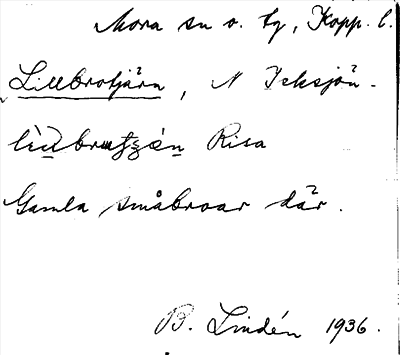 Mora sn o. tg, Kopp. l.
Lillbrotjärn, N Icksjön.
Risa
Gamla småbroar där.
B. Lindén 1936.